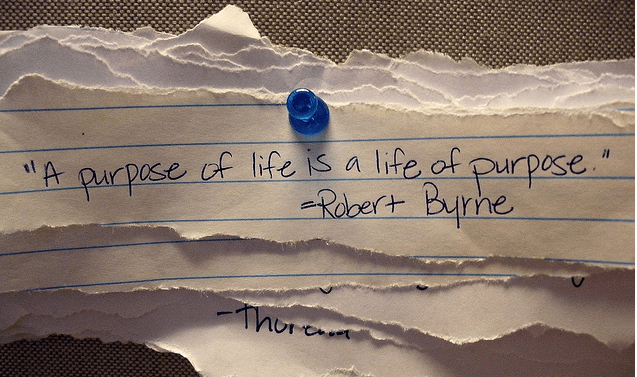 "A purpose of life is a life of purpose."
=Robert Byrne